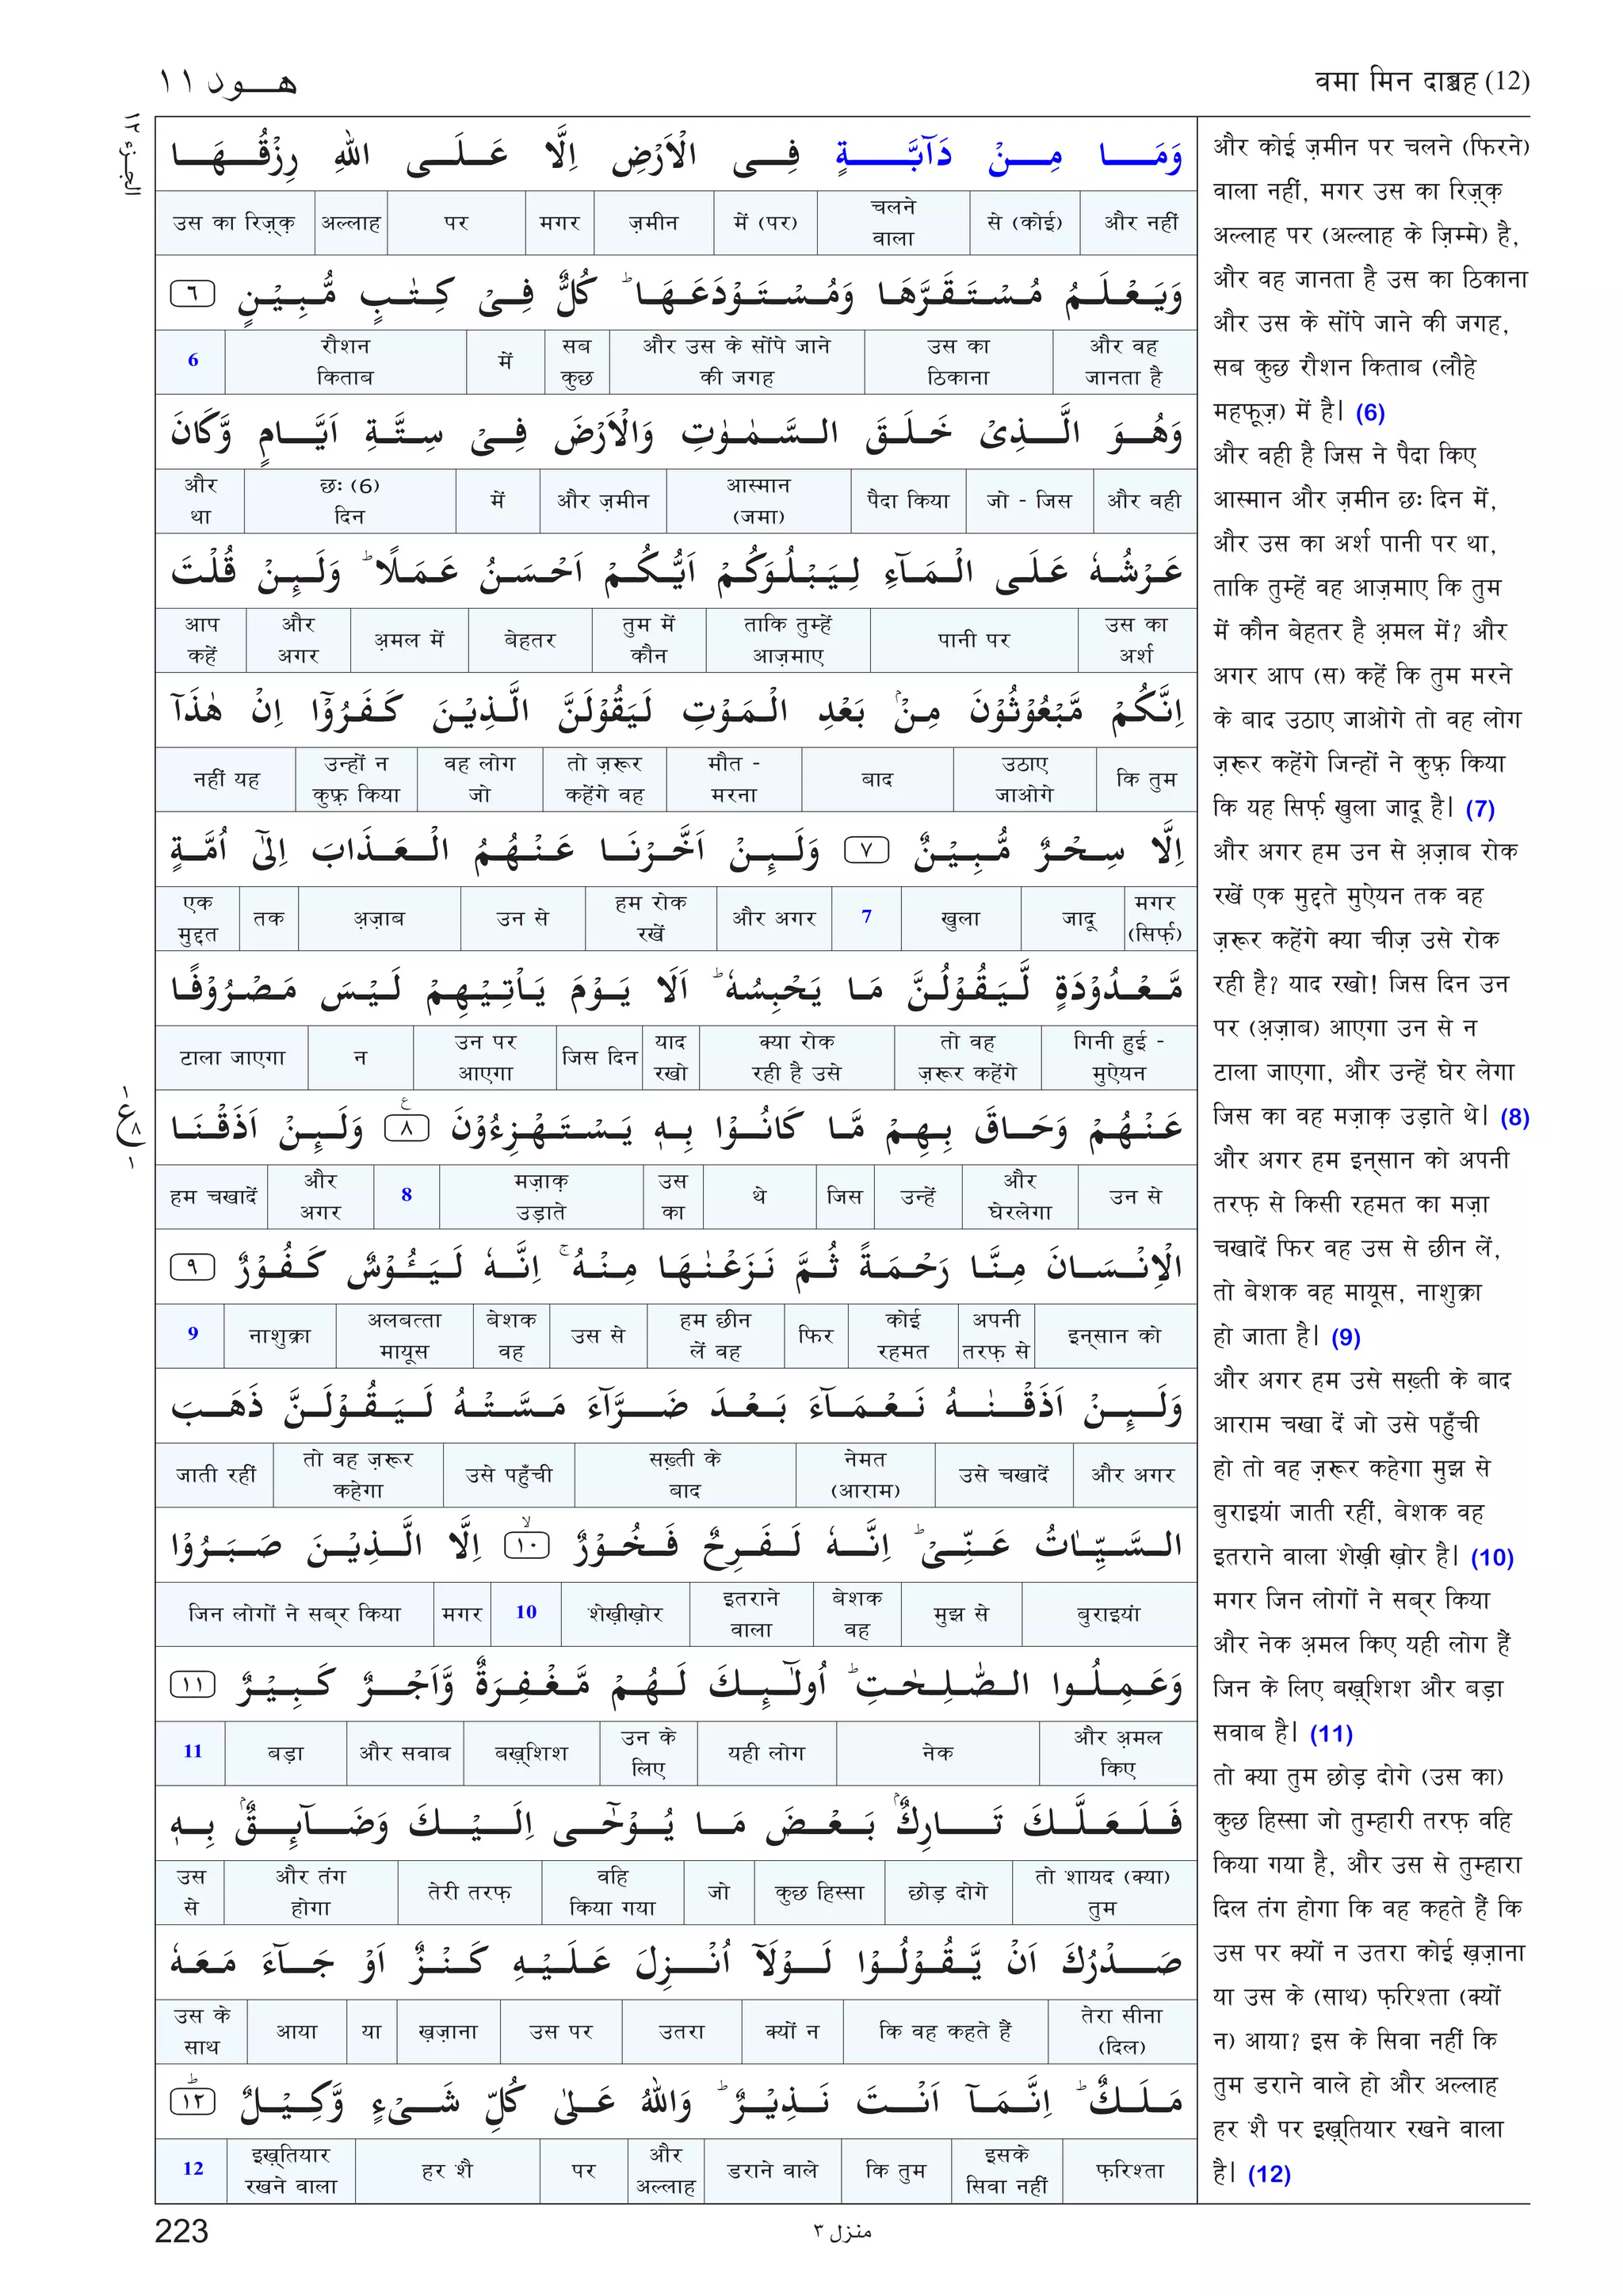 هــود ١١
वमा मिन दाब्बह (12)
الجزء ١٢
وَمَا مِنْ دَآبَّةٍ فِى الْاَرْضِ اِلَّا عَلَى اللّٰهِ رِزْقُهَا
और नहीं | से (कोई) | चलने वाला | में (पर) | ज़मीन | मगर | पर | अल्लाह | उस का रिज़्क़
وَيَعْلَمُ مُسْتَقَرَّهَا وَمُسْتَوْدَعَهَا ؕ كُلٌّ فِىْ كِتٰبٍ مُّبِيْنٍ ٦
और वह जानता है | उस का ठिकाना | और उस के सोंपे जाने की जगह | सब कुछ | में | रौशन किताब | 6
وَهُوَ الَّذِىْ خَلَقَ السَّمٰوٰتِ وَالْاَرْضَ فِىْ سِتَّةِ اَيَّامٍ وَّكَانَ
और वही | जो - जिस | पैदा किया | आस्मान (जमा) | और ज़मीन | में | छः (6) दिन | और था
عَرْشُهٗ عَلَى الْمَآءِ لِيَبْلُوَكُمْ اَيُّكُمْ اَحْسَنُ عَمَلًا ؕ وَلَئِنْ قُلْتَ
उस का अर्श | पानी पर | ताकि तुम्हें आज़माए | तुम में कौन | बेहतर | अ़मल में | और अगर | आप कहें
اِنَّكُمْ مَّبْعُوْثُوْنَ مِنْۢ بَعْدِ الْمَوْتِ لَيَقُوْلَنَّ الَّذِيْنَ كَفَرُوْۤا اِنْ هٰذَاۤ
कि तुम | उठाए जाओगे | बाद | मौत - मरना | तो ज़रूर कहेंगे वह | वह लोग जो | उन्हों न कुफ़्र किया | नहीं यह
اِلَّا سِحْرٌ مُّبِيْنٌ ٧ وَلَئِنْ اَخَّرْنَا عَنْهُمُ الْعَذَابَ اِلٰٓى اُمَّةٍ
मगर (सिर्फ़) | जादू | खुला | 7 | और अगर | हम रोक रखें | उन से | अ़ज़ाब | तक | एक मुद्दत
مَّعْدُوْدَةٍ لَّيَقُوْلُنَّ مَا يَحْبِسُهٗ ؕ اَلَا يَوْمَ يَاْتِيْهِمْ لَيْسَ مَصْرُوْفًا
गिनी हुई - मुऐयन | तो वह ज़रूर कहेंगे | क्या रोक रही है उसे | याद रखो | जिस दिन | उन पर आएगा | न | टाला जाएगा
عَنْهُمْ وَحَاقَ بِهِمْ مَّا كَانُوْا بِهٖ يَسْتَهْزِءُوْنَ ٨ وَلَئِنْ اَذَقْنَا
उन से | और घेरलेगा | उन्हें | जिस | थे | उस का | मज़ाक़ उड़ाते | 8 | और अगर | हम चखादें
الْاِنْسَانَ مِنَّا رَحْمَةً ثُمَّ نَزَعْنٰهَا مِنْهُ ۚ اِنَّهٗ لَيَــُٔوْسٌ كَفُوْرٌ ٩
इन्सान को | अपनी तरफ़ से | कोई रहमत | फिर | हम छीन लें वह | उस से | बेशक वह | अलबत्ता मायूस | नाशुक्रा | 9
وَلَئِنْ اَذَقْنٰهُ نَعْمَآءَ بَعْدَ ضَرَّآءَ مَسَّتْهُ لَيَقُوْلَنَّ ذَهَبَ
और अगर | उसे चखादें | नेमत (आराम) | सख़्ती के बाद | उसे पहुँची | तो वह ज़रूर कहेगा | जाती रहीं
السَّيِّاٰتُ عَنِّىْ ؕ اِنَّهٗ لَفَرِحٌ فَخُوْرٌ ۙ ١٠ اِلَّا الَّذِيْنَ صَبَرُوْا
बुराइयां | मुझ से | बेशक वह | इतराने वाला | शेख़ीख़ोर | 10 | मगर | जिन लोगों ने सब्र किया
وَعَمِلُوا الصّٰلِحٰتِ ؕ اُولٰٓئِكَ لَهُمْ مَّغْفِرَةٌ وَّاَجْرٌ كَبِيْرٌ ١١
और अ़मल किए | नेक | यही लोग | उन के लिए | बख़्शिश | और सवाब | बड़ा | 11
فَلَعَلَّكَ تَارِكٌۢ بَعْضَ مَا يُوْحٰٓى اِلَيْكَ وَضَآئِقٌۢ بِهٖ
तो शायद (क्या) तुम | छोड़ दोगे | कुछ हिस्सा | जो | वहि किया गया | तेरी तरफ़ | और तंग होगा | उस से
صَدْرُكَ اَنْ يَّقُوْلُوْا لَوْلَاۤ اُنْزِلَ عَلَيْهِ كَنْزٌ اَوْ جَآءَ مَعَهٗ
तेरा सीना (दिल) | कि वह कहते हैं | क्यों न | उतरा | उस पर | ख़ज़ाना | या | आया | उस के साथ
مَلَكٌ ؕ اِنَّمَاۤ اَنْتَ نَذِيْرٌ ؕ وَاللّٰهُ عَلٰى كُلِّ شَىْءٍ وَّكِيْلٌ ؕ ١٢
फ़रिश्ता | इसके सिवा नहीं | कि तुम | डराने वाले | और अल्लाह | पर | हर शै | इख़्तियार रखने वाला | 12
और कोई ज़मीन पर चलने (फिरने)
वाला नहीं, मगर उस का रिज़्क़
अल्लाह पर (अल्लाह के ज़िम्मे) है,
और वह जानता है उस का ठिकाना
और उस के सोंपे जाने की जगह,
सब कुछ रौशन किताब (लौहे
महफ़ूज़) में है। (6)
और वही है जिस ने पैदा किए
आस्मान और ज़मीन छः दिन में,
और उस का अर्श पानी पर था,
ताकि तुम्हें वह आज़माए कि तुम
में कौन बेहतर है अ़मल में? और
अगर आप (स) कहें कि तुम मरने
के बाद उठाए जाओगे तो वह लोग
ज़रूर कहेंगे जिन्हों ने कुफ़्र किया
कि यह सिर्फ़ खुला जादू है। (7)
और अगर हम उन से अ़ज़ाब रोक
रखें एक मुद्दते मुऐयन तक वह
ज़रूर कहेंगे क्या चीज़ उसे रोक
रही है? याद रखो! जिस दिन उन
पर (अ़ज़ाब) आएगा उन से न
टाला जाएगा, और उन्हें घेर लेगा
जिस का वह मज़ाक़ उड़ाते थे। (8)
और अगर हम इन्सान को अपनी
तरफ़ से किसी रहमत का मज़ा
चखादें फिर वह उस से छीन लें,
तो बेशक वह मायूस, नाशुक्रा
हो जाता है। (9)
और अगर हम उसे सख़्ती के बाद
आराम चखा दें जो उसे पहुँची
हो तो वह ज़रूर कहेगा मुझ से
बुराइयां जाती रहीं, बेशक वह
इतराने वाला शेख़ी ख़ोर है। (10)
मगर जिन लोगों ने सब्र किया
और नेक अ़मल किए यही लोग हैं
जिन के लिए बख़्शिश और बड़ा
सवाब है। (11)
तो क्या तुम छोड़ दोगे (उस का)
कुछ हिस्सा जो तुम्हारी तरफ़ वहि
किया गया है, और उस से तुम्हारा
दिल तंग होगा कि वह कहते हैं कि
उस पर क्यों न उतरा कोई ख़ज़ाना
या उस के (साथ) फ़रिश्ता (क्यों
न) आया? इस के सिवा नहीं कि
तुम डराने वाले हो और अल्लाह
हर शै पर इख़्तियार रखने वाला
है। (12)
ع ٨
223
منزل ٣